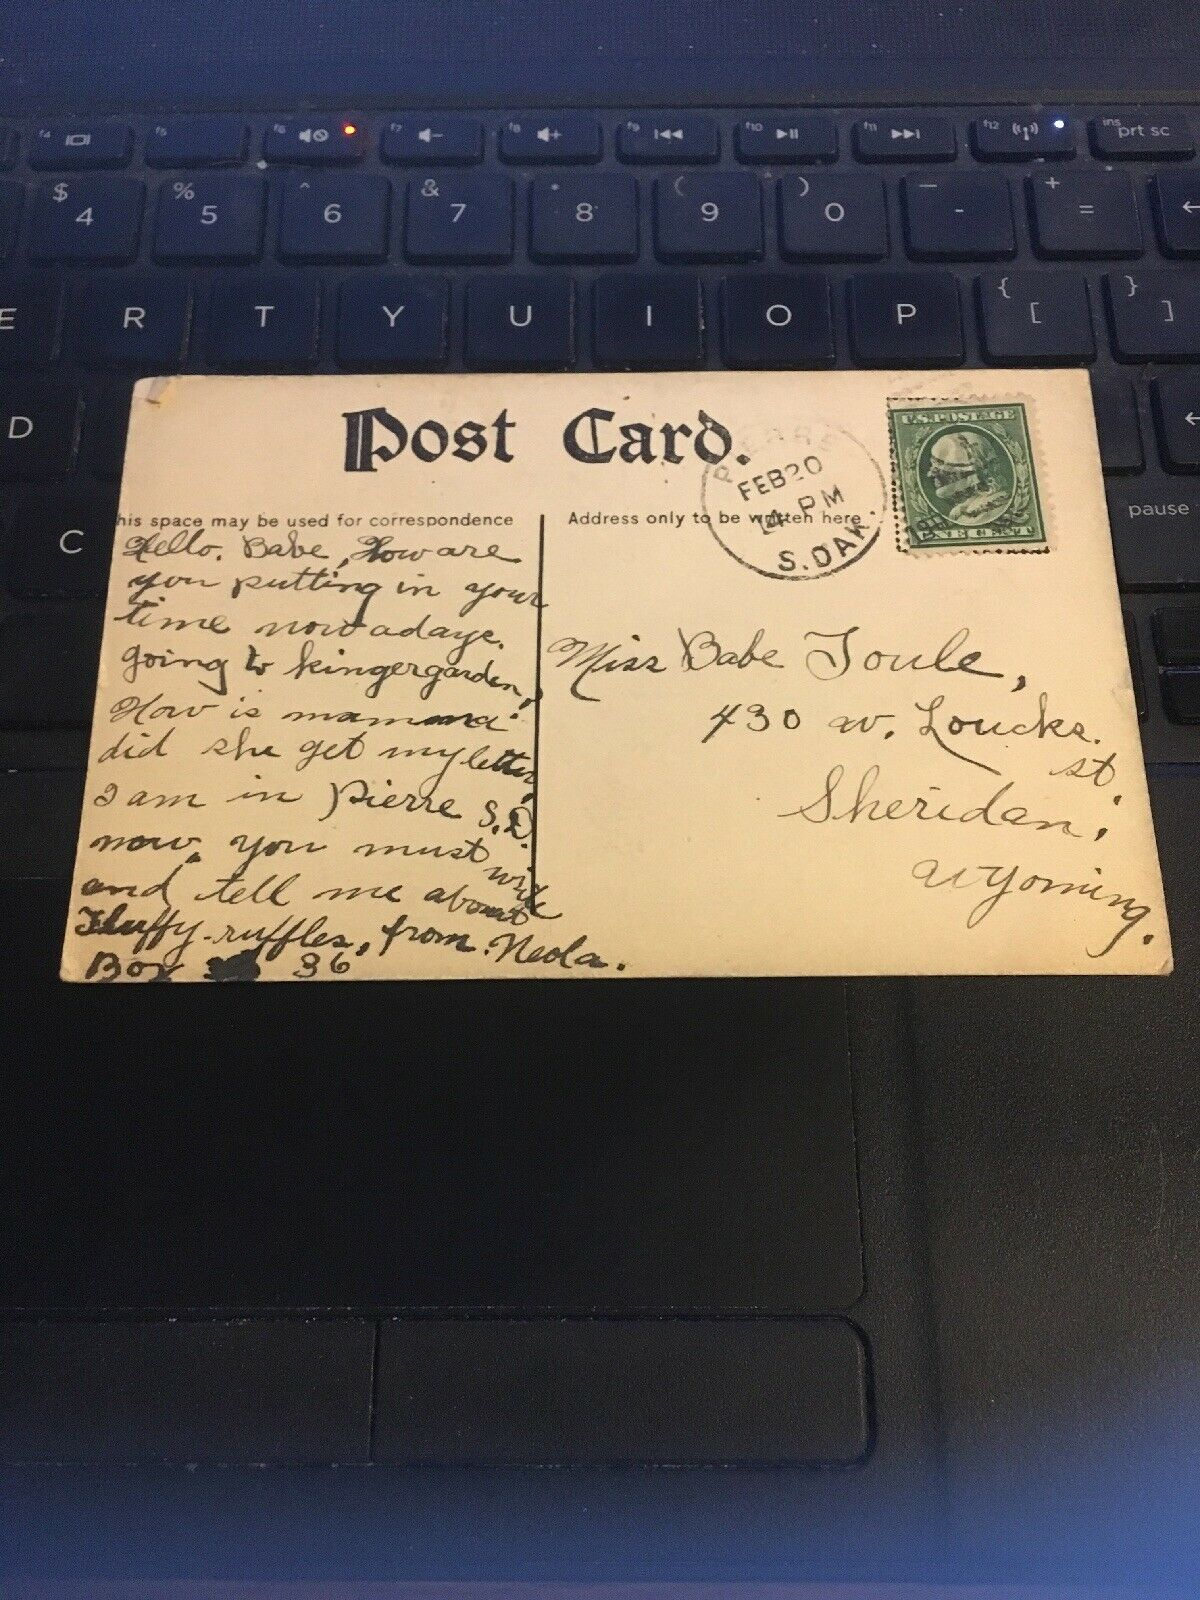 f4
f5
f6
f7
f8
f9
f10
f11
f12
ins
prt sc
$ 4
% 5
^ 6
& 7
* 8
( 9
) 0
_ -
+ =
E R T Y U I O P { [ } ]
D
C
pause
Post Card.
PIERRE
FEB 20
PM
S. DAK.
U.S. POSTAGE
his space may be used for correspondence
Address only to be written here
Hello. Babe, How are
you putting in your
time now adays.
going to kingergarden?
How is mamma?
did she get my letter?
I am in Pierre S.D.
now. you must write
and tell me about
Fluffy-ruffles, from Neola.
Box 36
Miss Babe Toule,
430 W. Loucks.
st.
Sheridan,
Wyoming.